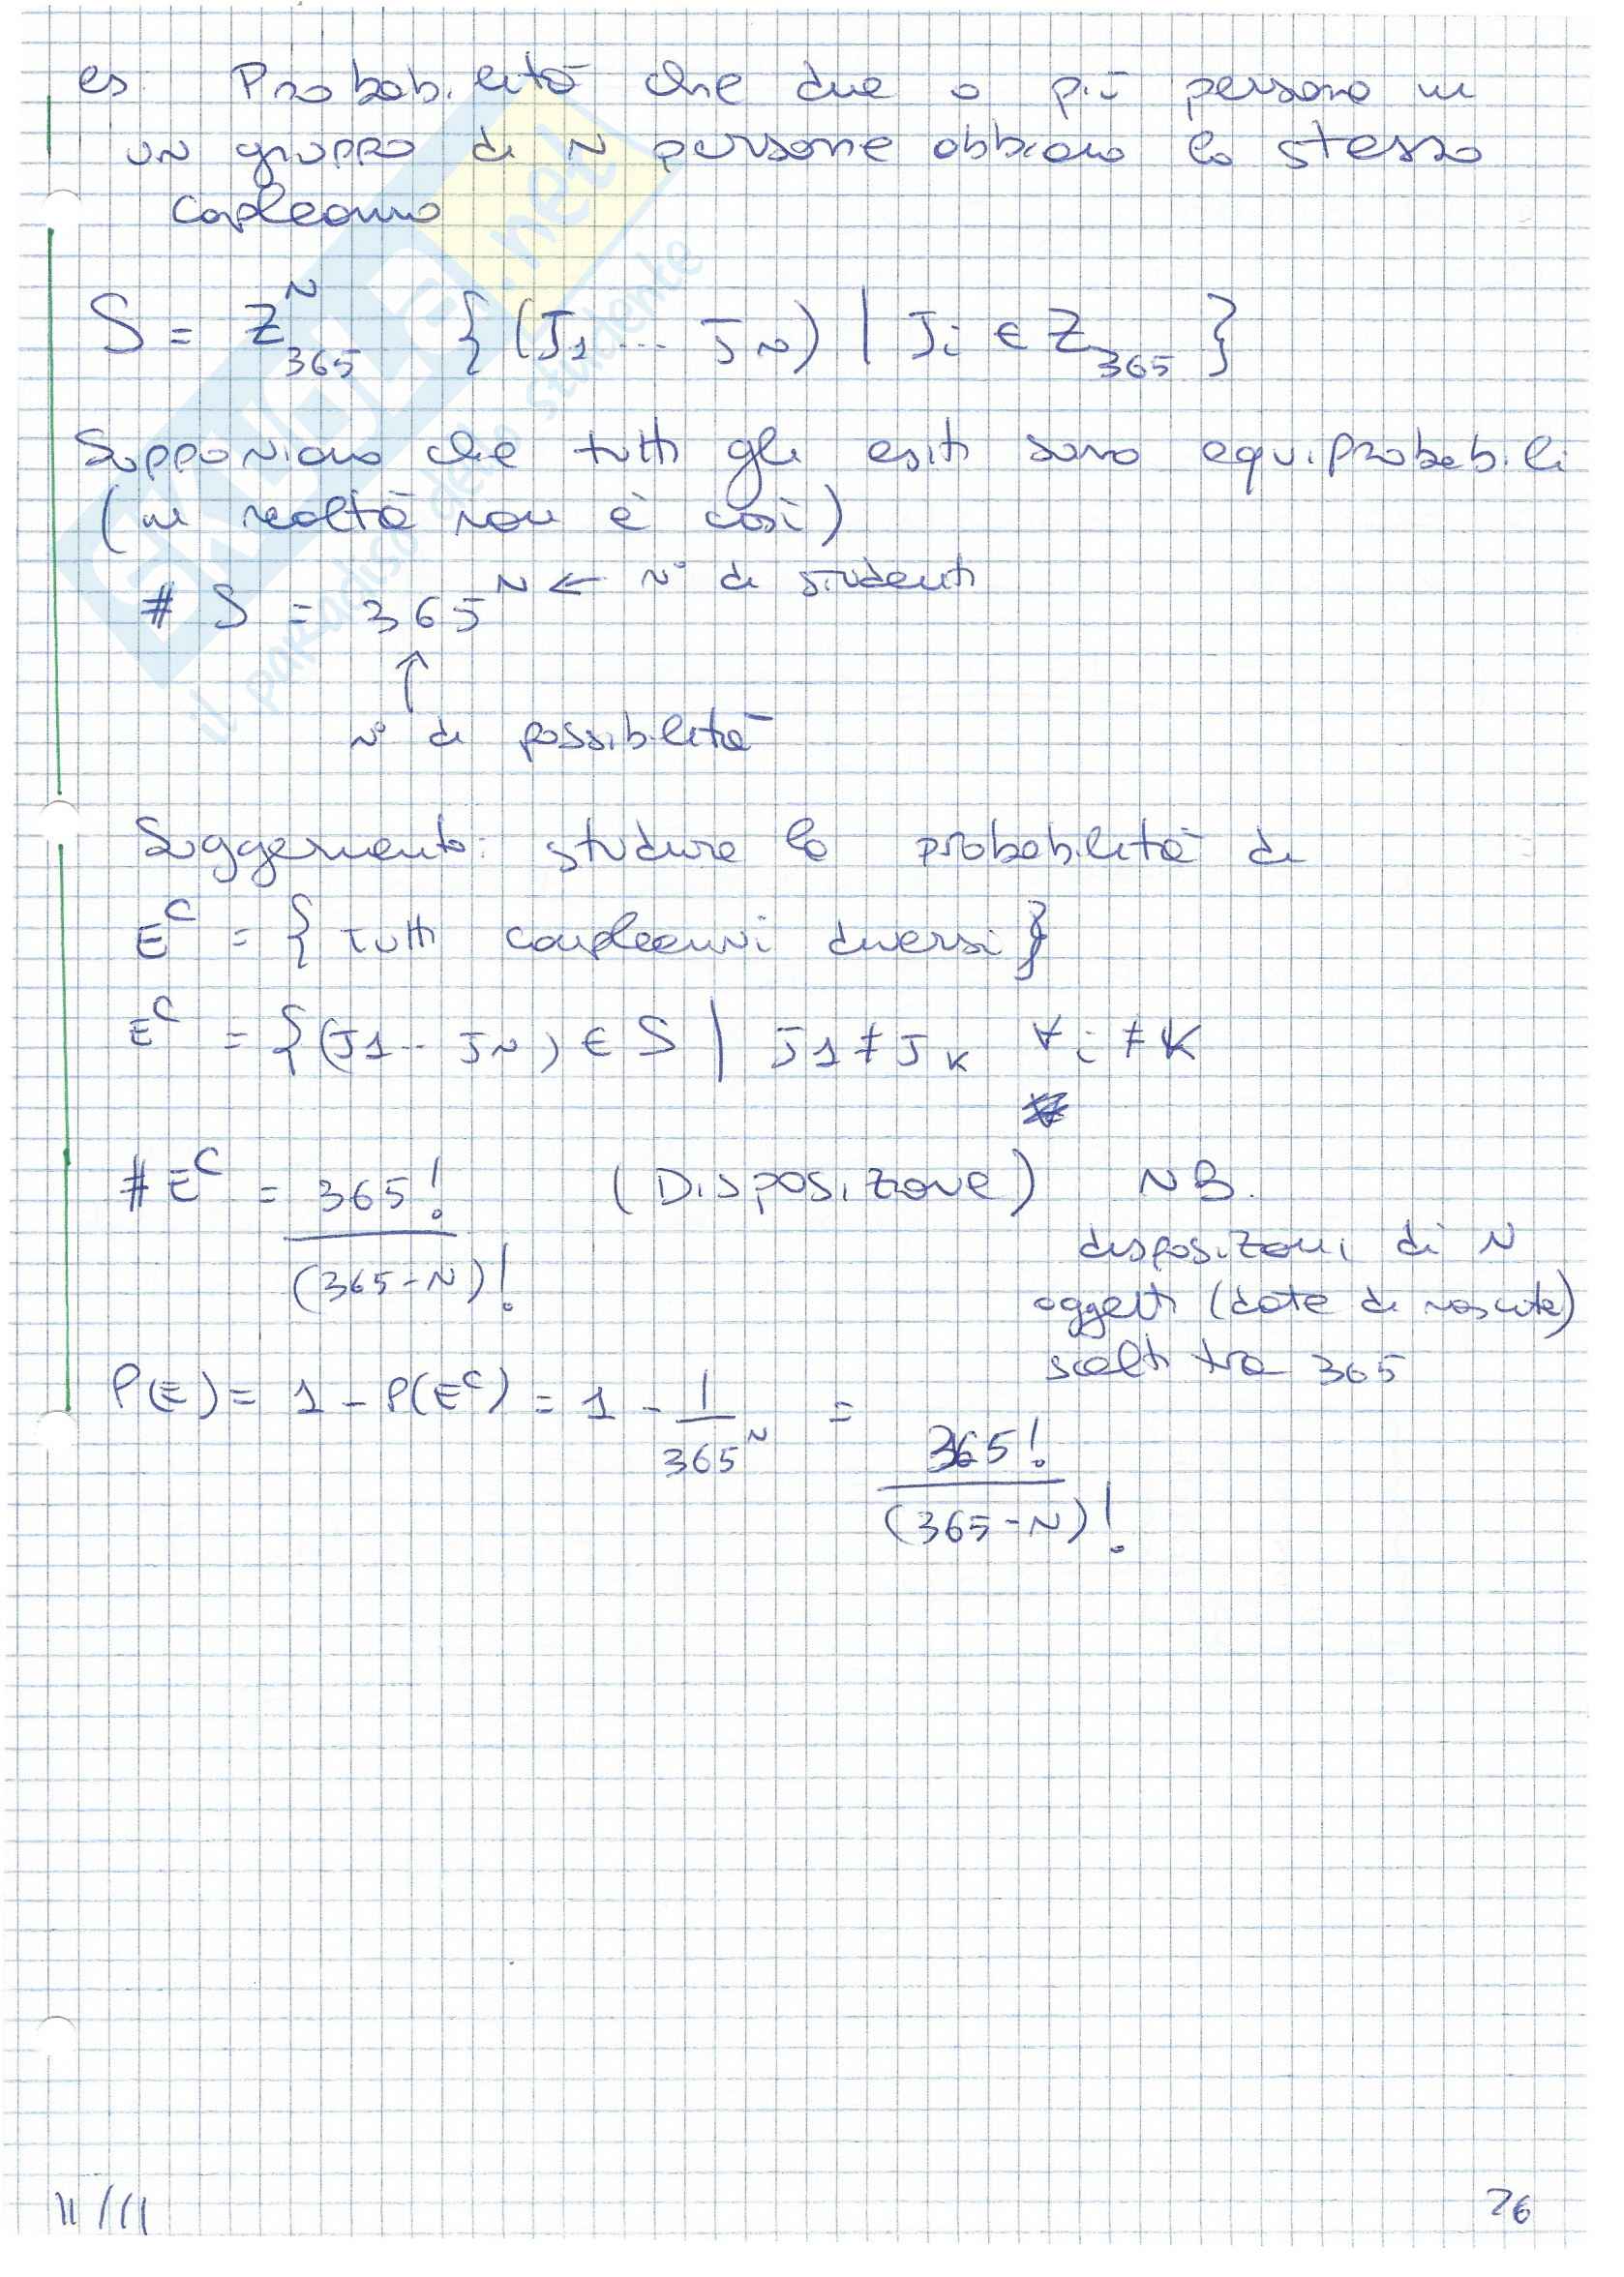 es Probabilità che due o più persone in
un gruppo di N persone abbiano lo stesso
copleanno
S = Z^N_365 { (J1 ... JN) | Ji ∈ Z365 }
Supponiamo che tutti gli esiti sono equiprobabili
(in realtà non è così)
# S = 365^N ← N° di studenti
↑
N° di possibilità
Suggerimento: studiare la probabilità di
E^C = { tutti compleanni diversi }
E^C = { (J1 .. JN) ∈ S | J1 ≠ JK ∀ i ≠ K
# E^C = 365! / (365-N)! (Disposizione) NB.
disposizioni di N
oggetti (date di nascita)
scelti tra 365
P(E) = 1 - P(E^C) = 1 - 1/365^N = 365! / (365-N)!
11/11
26
SKUOLA.net
il paradiso dello studente